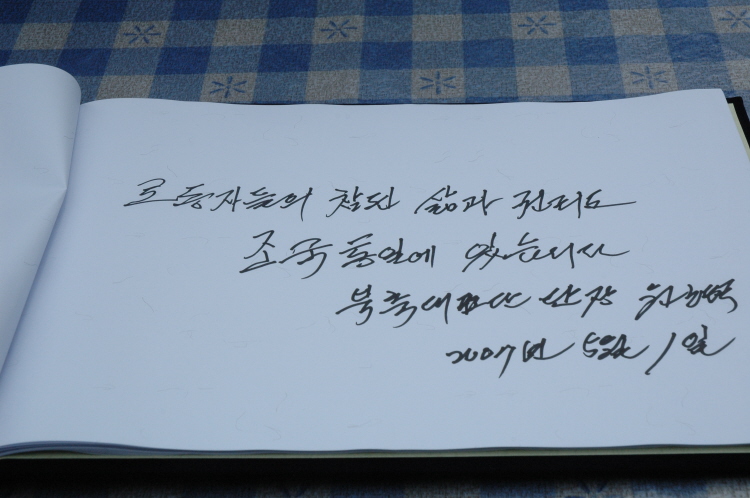 로동자들의 참된 삶과 권리도
조국통일에 있습니다
북측대표단 단장 원형국
2007년 5월 1일